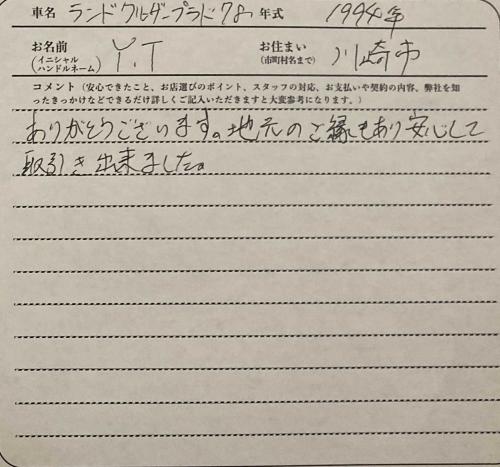 車名 ランドクルーザープラド78 年式 1994年
お名前 (イニシャル ハンドルネーム) Y.T お住まい (市町村名まで) 川崎市
コメント（安心できたこと、お店選びのポイント、スタッフの対応、お支払いや契約の内容、弊社を知
ったきっかけなどできるだけ詳しくご記入いただきますと大変参考になります。）
ありがとうございます。地元のご縁もあり安心して
取引き出来ました。